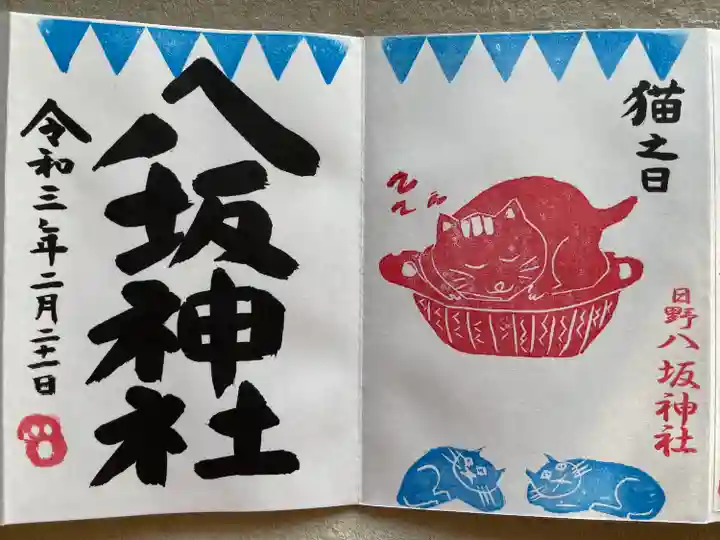 猫之日
日野八坂神社
八坂神社
令和三年二月二十一日